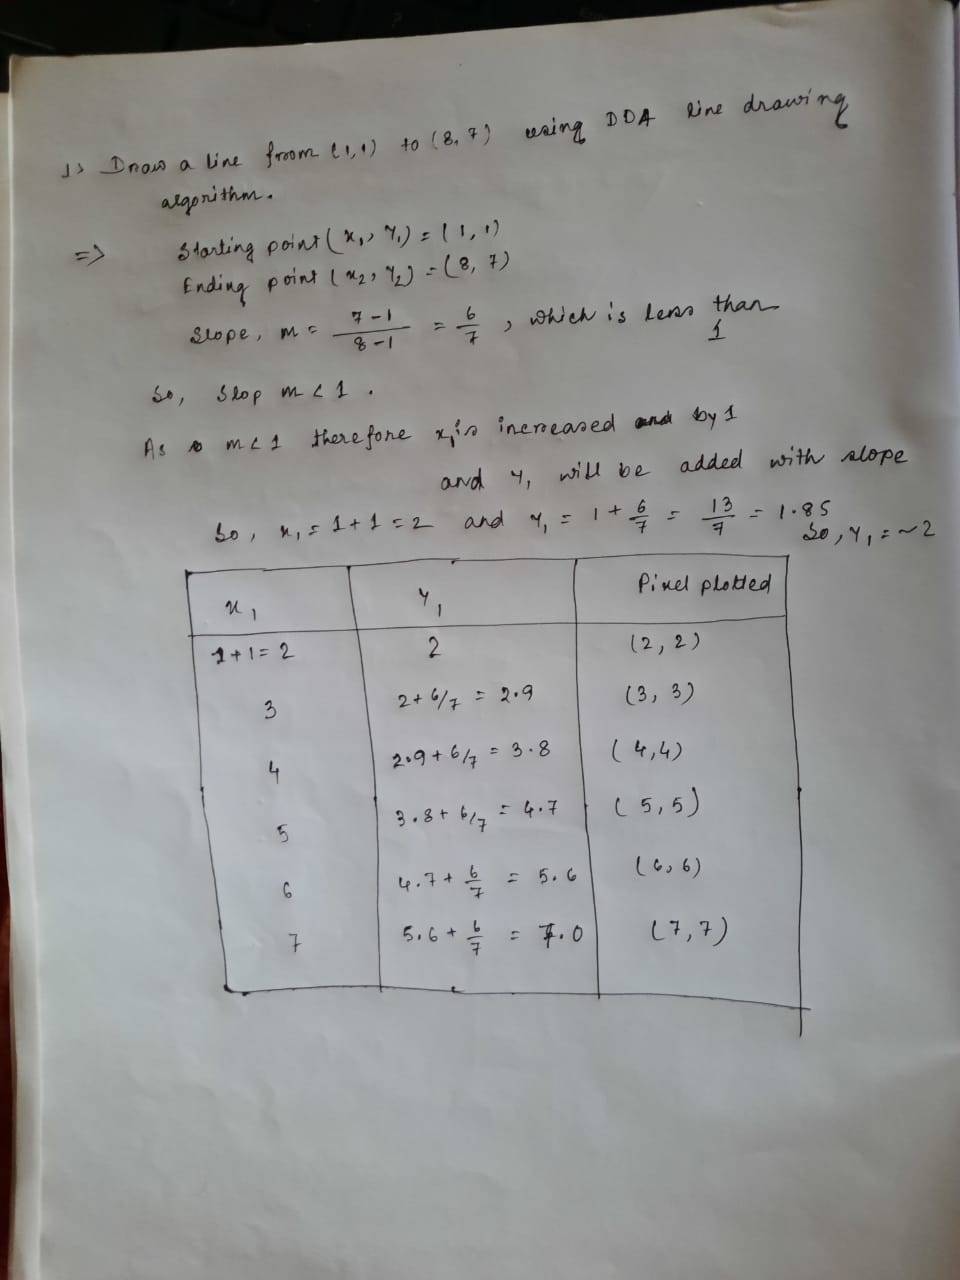 1> Draw a line from (1,1) to (8,7) using DDA line drawing
algorithm.
=> Starting point (x₁, y₁) = (1, 1)
Ending point (x₂, y₂) = (8, 7)
Slope, m = 7-1/8-1 = 6/7, which is less than 1
So, Slop m < 1.
As m<1 therefore x₁ is increased by 1
and y₁ will be added with slope
So, x₁ = 1+1 = 2 and y₁ = 1 + 6/7 = 13/7 = 1.85
So, y₁ = ~2
x₁ y₁ Pixel plotted
1+1=2 2 (2, 2)
3 2+6/7 = 2.9 (3, 3)
4 2.9+6/7 = 3.8 (4,4)
5 3.8+6/7 = 4.7 (5,5)
6 4.7+6/7 = 5.6 (6,6)
7 5.6+6/7 = 7.0 (7,7)